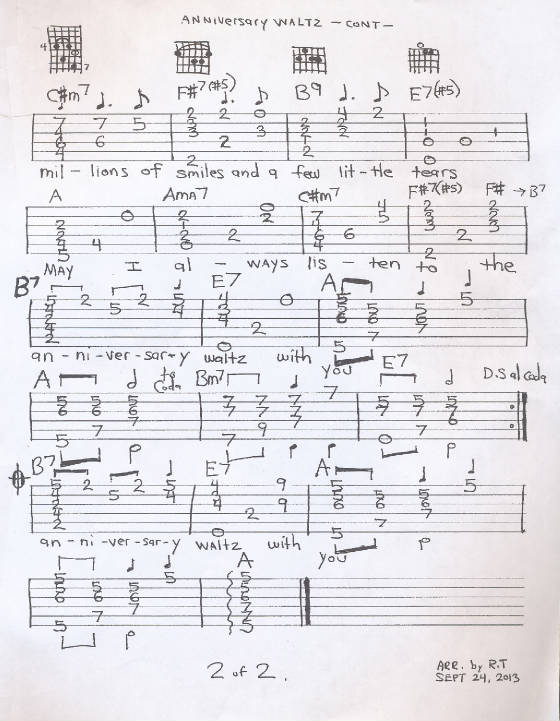 ANNIVERSARY WALTZ - CONT -
C#m7 F#7(#5) B9 E7(#5)
mil-lions of smiles and a few lit-tle tears
A AMA7 C#m7 F#7(#5) F# → B7
MAY I al - ways lis - ten to the
B7 E7 A
an - ni - ver - sar-y waltz with you
A to Coda Bm7 E7 D.S al Coda
B7 E7 A
an - ni - ver - sar-y WALTZ with you
A
2 of 2.
ARR. by R.T
SEPT 24, 2013